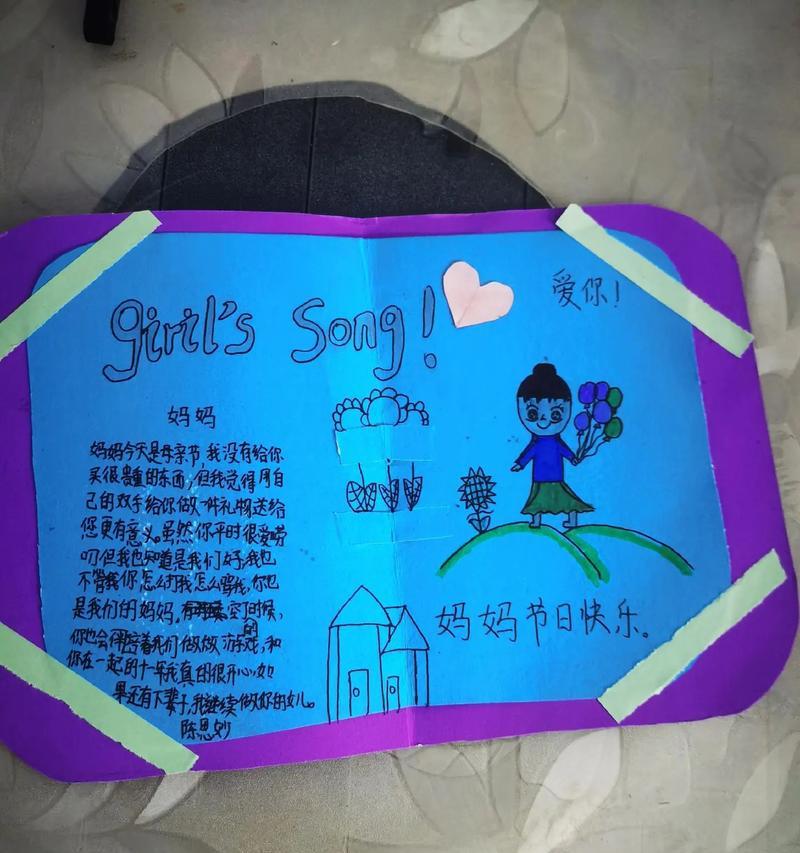 girl's Song!
爱你!
妈妈
妈妈今天是母亲节,我没有给你
买很贵重的东西,但我觉得用自
己的双手给你做一件礼物送给
您更有意义。虽然你平时很爱唠
叨但我也知道是我们好,我也
不管你怎么打我怎么骂我,你也
是我们的妈妈,空的时候,
你也会陪着我们做做游戏,和
你在一起的十年我真的很开心,如
果还有下辈子,我继续做你的女儿。
陈思妙
妈妈节日快乐。